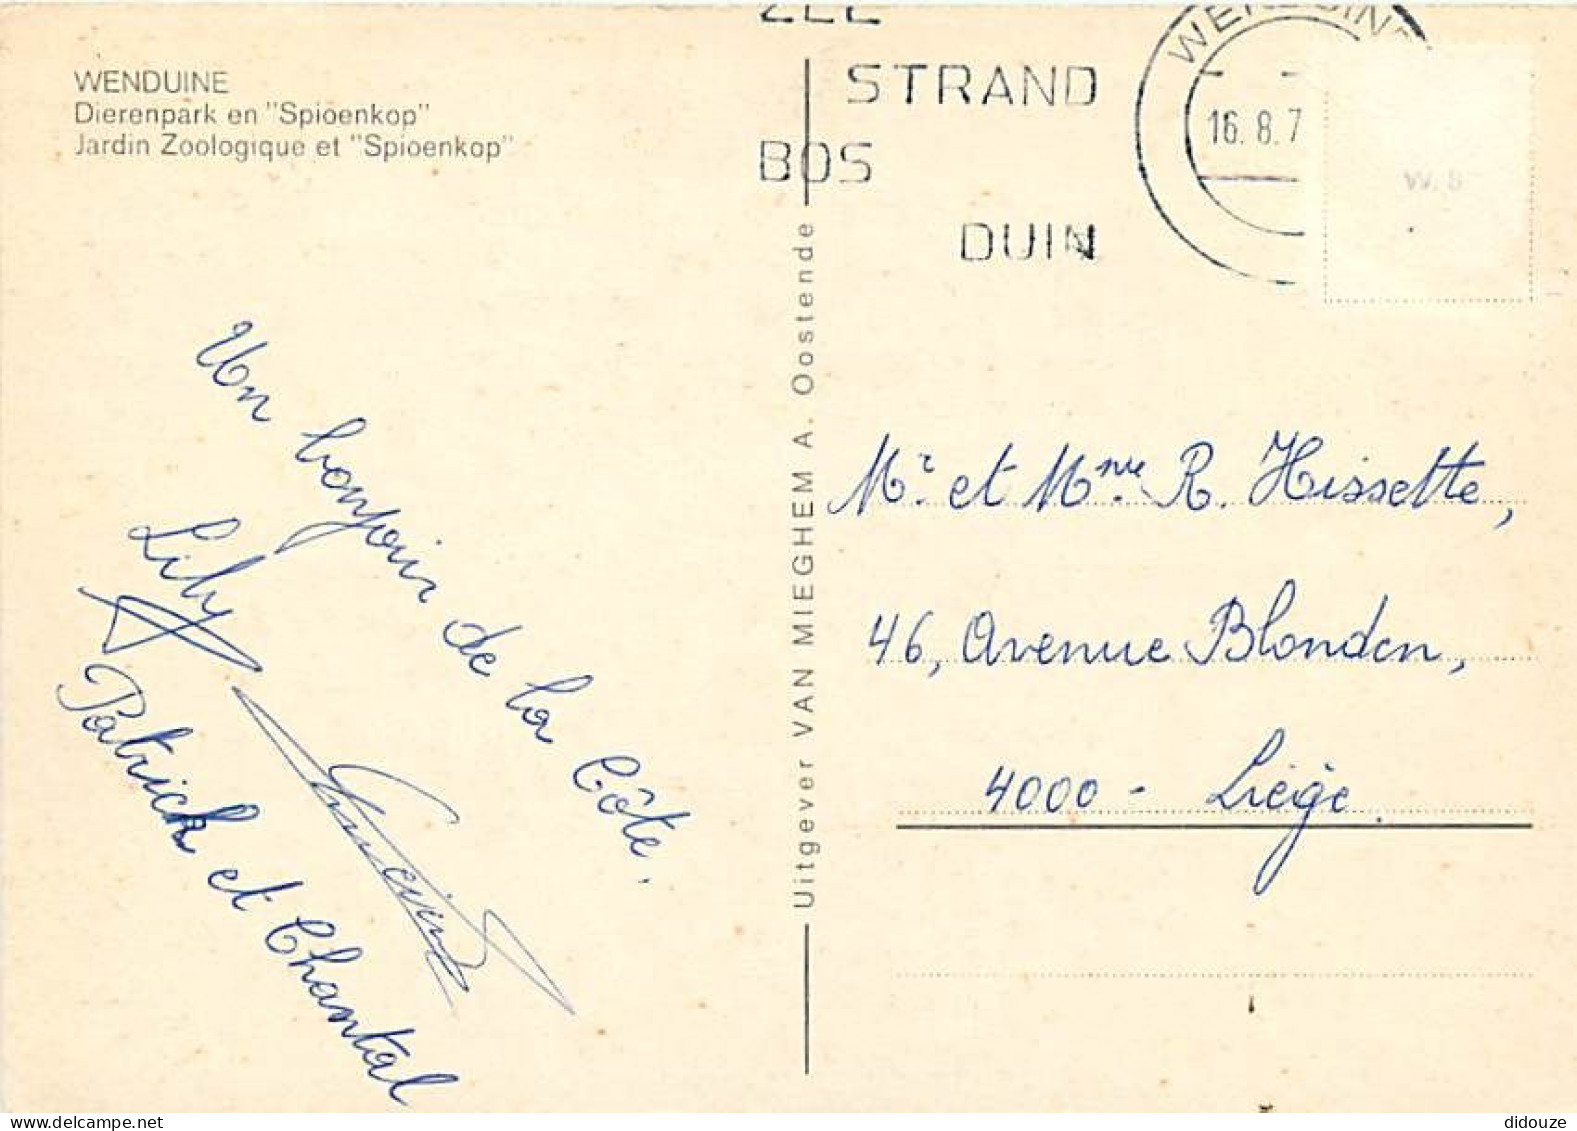 WENDUINE
Dierenpark en "Spioenkop"
Jardin Zoologique et "Spioenkop"
ZEE
STRAND
BOS
DUIN
WENDUINE
16.8.7
W.8
Uitgever VAN MIEGHEM A. Oostende
Un bonjour de la Côte.
Lily
Patrick et Chantal
Mr. et Mme R. Hissette,
46, Avenue Blonden,
4000 - Liège.
didouze